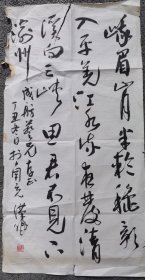 峨眉山月半輪秋影
入平羌江水流夜發清
溪向三峽思君不見下
渝州
丁丑冬日於